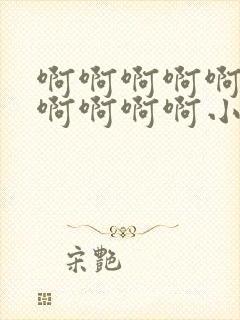 啊啊啊啊啊
啊啊啊啊小
宋艷